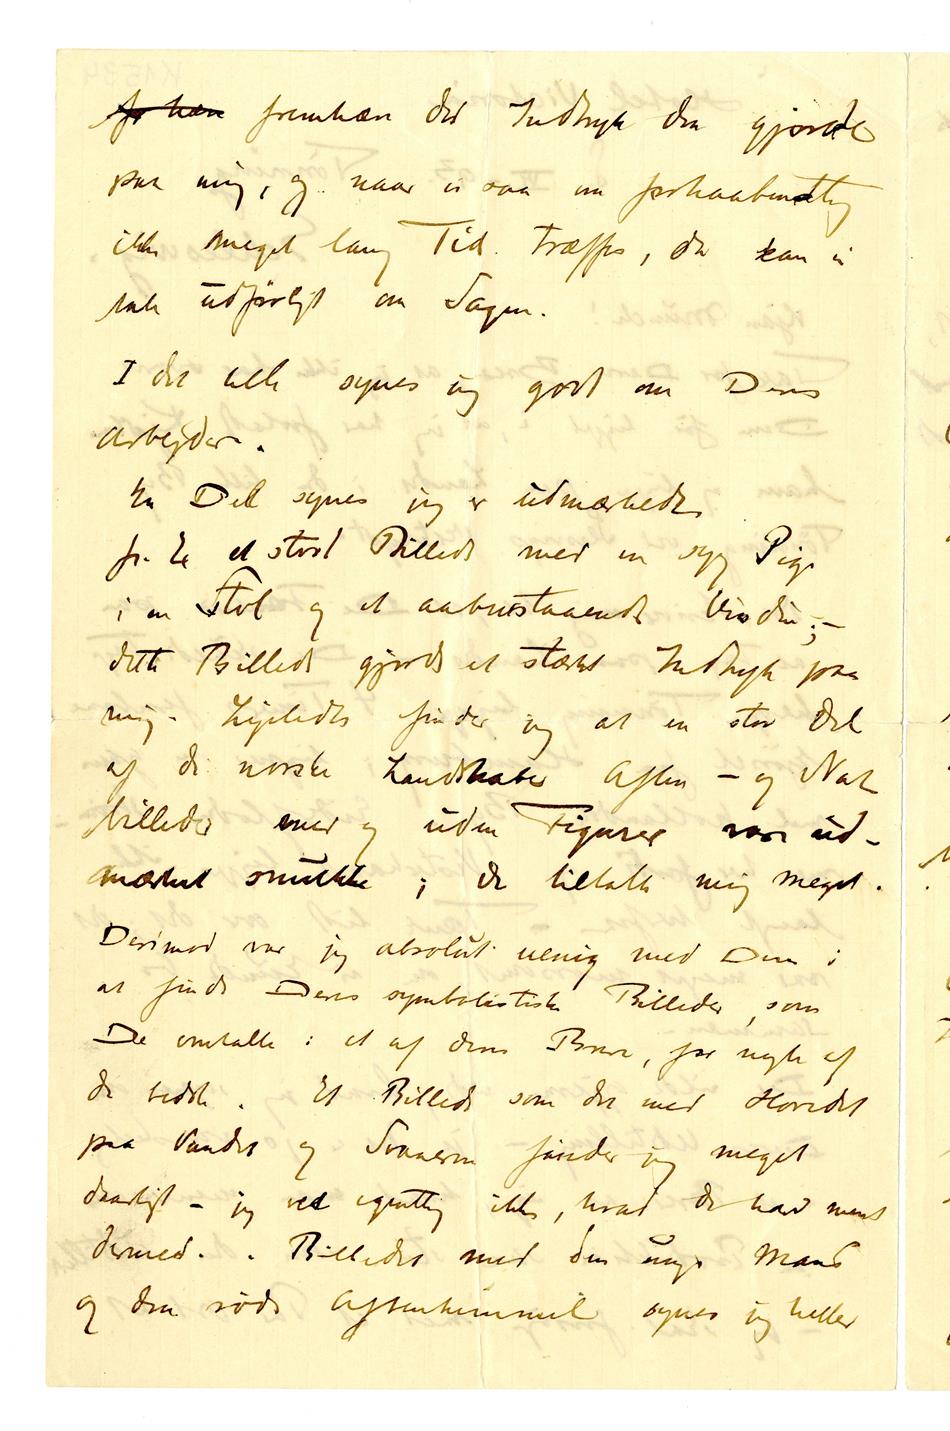 for han fremhæve det Indtryk den gjorde
paa mig, og naar vi saa om forhaabentlig
ikke meget lang Tid træffes, da kan vi
tale udførligt om Sagen.
I det hele synes jeg godt om Deres
Arbejder.
En Del synes jeg er udmærkede
f. Ex et stort Billede med en syg Pige
i en Stol og et aabenstaaende Vindu; –
dette Billede gjorde et stærkt Indtryk paa
mig. Ligeledes finder jeg at en stor Del
af de norske Landskaber Aften – og Nat
billeder med og uden Figurer vare ud-
mærket smukke; de tiltalte mig meget.
Derimod var jeg absolut uenig med Dem i
at finde Deres symbolistiske Billeder, som
De omtalte i et af deres Breve, for nogle af
de bedste. Et Billede som det med Hovedet
paa Vandet og Svanerne finder jeg meget
daarligt – jeg ved egentlig ikke, hvad De har ment
dermed. Billedet med den unge Mand
og den røde Aftenhimmel synes jeg heller